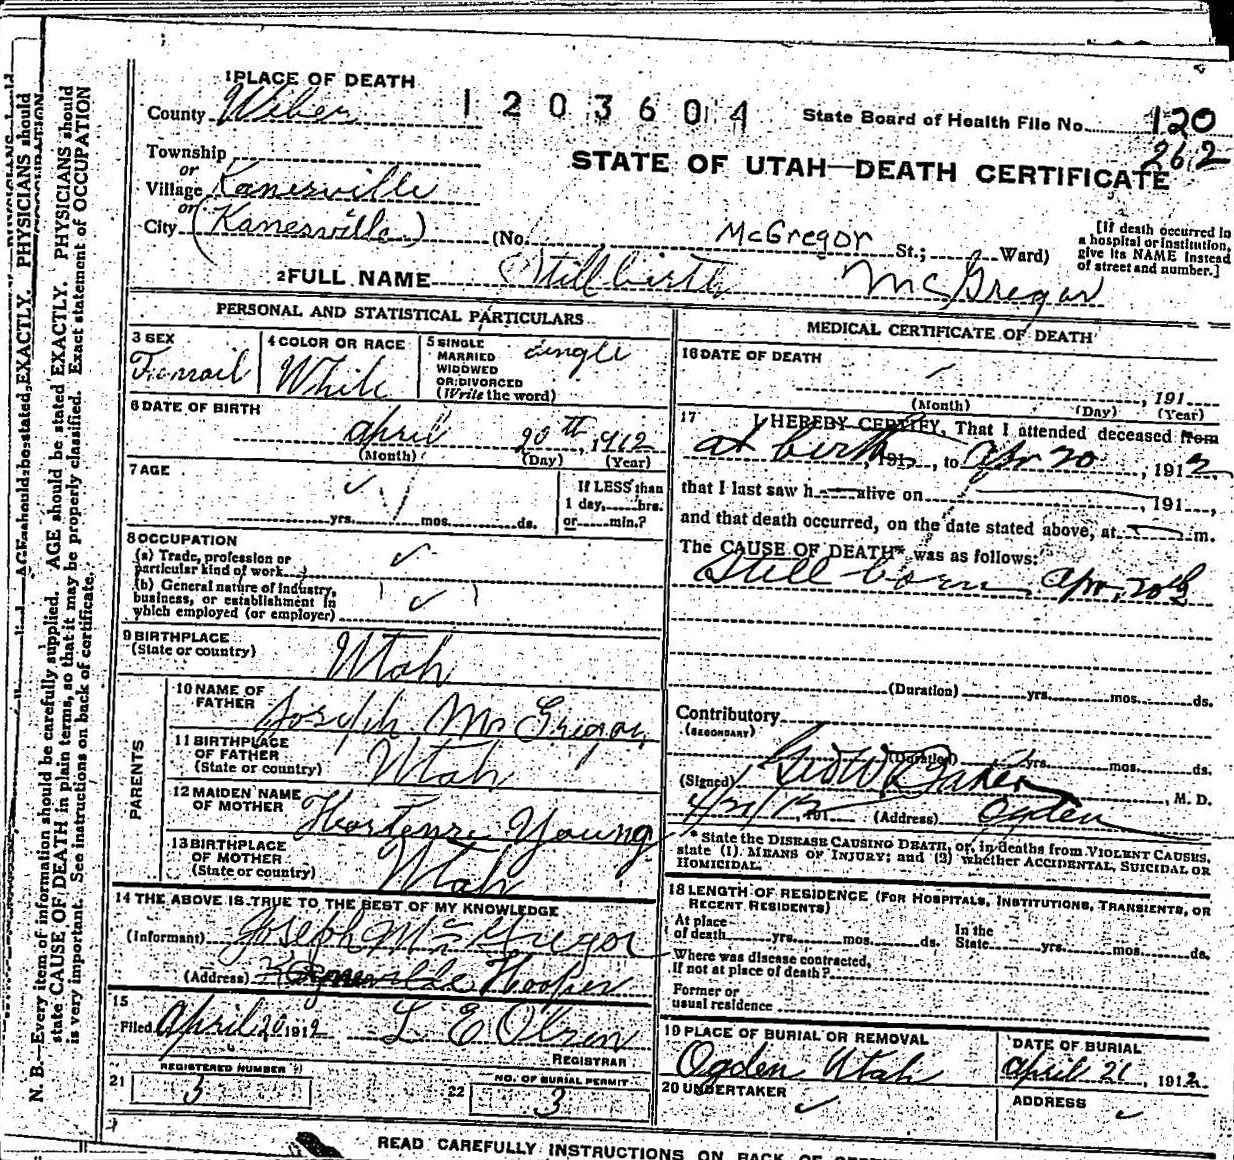 1 PLACE OF DEATH
County Weber
1203604
State Board of Health File No. 120
262
Township
or
Village Kanesville
or
City (Kanesville)
STATE OF UTAH—DEATH CERTIFICATE
(No. McGregor St.; Ward)
[If death occurred in a hospital or institution, give its NAME instead of street and number.]
2 FULL NAME Stillbirth McGregor
PERSONAL AND STATISTICAL PARTICULARS
3 SEX
Femail
4 COLOR OR RACE
White
5 SINGLE
MARRIED
WIDOWED
OR DIVORCED
(Write the word)
single
6 DATE OF BIRTH
April 20th, 1912
(Month) (Day) (Year)
7 AGE
yrs. mos. ds.
If LESS than
1 day, hrs.
or min.?
8 OCCUPATION
(a) Trade, profession or
particular kind of work
(b) General nature of industry,
business, or establishment in
which employed (or employer)
9 BIRTHPLACE
(State or country)
Utah
PARENTS
10 NAME OF
FATHER
Joseph McGregor
11 BIRTHPLACE
OF FATHER
(State or country)
Utah
12 MAIDEN NAME
OF MOTHER
Hortense Young
13 BIRTHPLACE
OF MOTHER
(State or country)
Utah
14 THE ABOVE IS TRUE TO THE BEST OF MY KNOWLEDGE
(Informant) Joseph McGregor
(Address) Kanesville Hooper
15
Filed April 20 1912 L E Olsen
REGISTRAR
REGISTERED NUMBER
21 3
NO. OF BURIAL PERMIT
22 3
MEDICAL CERTIFICATE OF DEATH
16 DATE OF DEATH
, 191
(Month) (Day) (Year)
17 I HEREBY CERTIFY, That I attended deceased from
at birth, 191, to Apr 20, 1912,
that I last saw h alive on , 191,
and that death occurred, on the date stated above, at m.
The CAUSE OF DEATH* was as follows:
Still born Apr. 20th
(Duration) yrs. mos. ds.
Contributory
(SECONDARY)
(Duration) yrs. mos. ds.
(Signed) Geo W Baker, M. D.
4/21/12, 191 (Address) Ogden
* State the DISEASE CAUSING DEATH, or, in deaths from VIOLENT CAUSES,
state (1) MEANS OF INJURY; and (2) whether ACCIDENTAL, SUICIDAL OR
HOMICIDAL.
18 LENGTH OF RESIDENCE (FOR HOSPITALS, INSTITUTIONS, TRANSIENTS, OR
RECENT RESIDENTS)
At place
of death yrs. mos. ds.
In the
State yrs. mos. ds.
Where was disease contracted,
If not at place of death?
Former or
usual residence
19 PLACE OF BURIAL OR REMOVAL
Ogden Utah
DATE OF BURIAL
April 21, 1912
20 UNDERTAKER
ADDRESS
READ CAREFULLY INSTRUCTIONS ON BACK OF
N. B.—Every item of information should be carefully supplied. AGE should be stated EXACTLY. PHYSICIANS should
state CAUSE OF DEATH in plain terms, so that it may be properly classified. Exact statement of OCCUPATION
is very important. See instructions on back of certificate.